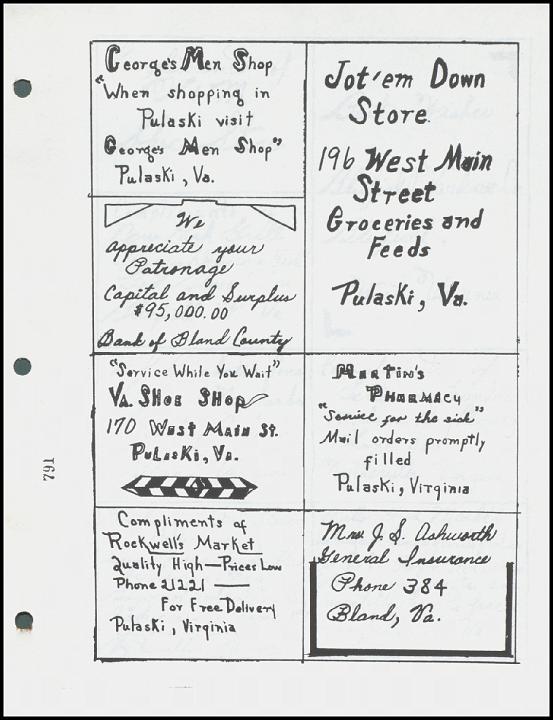 George's Men Shop
"When shopping in
Pulaski visit
George's Men Shop"
Pulaski, Va.
Jot'em Down
Store.
196 West Main
Street
Groceries and
Feeds
Pulaski, Va.
We
appreciate your
Patronage
Capital and Surplus
$95,000.00
Bank of Bland County
"Service While You Wait"
Va. Shoe Shop
170 West Main St.
Pulaski, Va.
Martin's
Pharmacy
"Service for the sick"
Mail orders promptly
filled
Pulaski, Virginia
Compliments of
Rockwell's Market
Quality High—Prices Low
Phone 21221 —
For Free Delivery
Pulaski, Virginia
Mrs. J. S. Ashworth
General Insurance
Phone 384
Bland, Va.
791